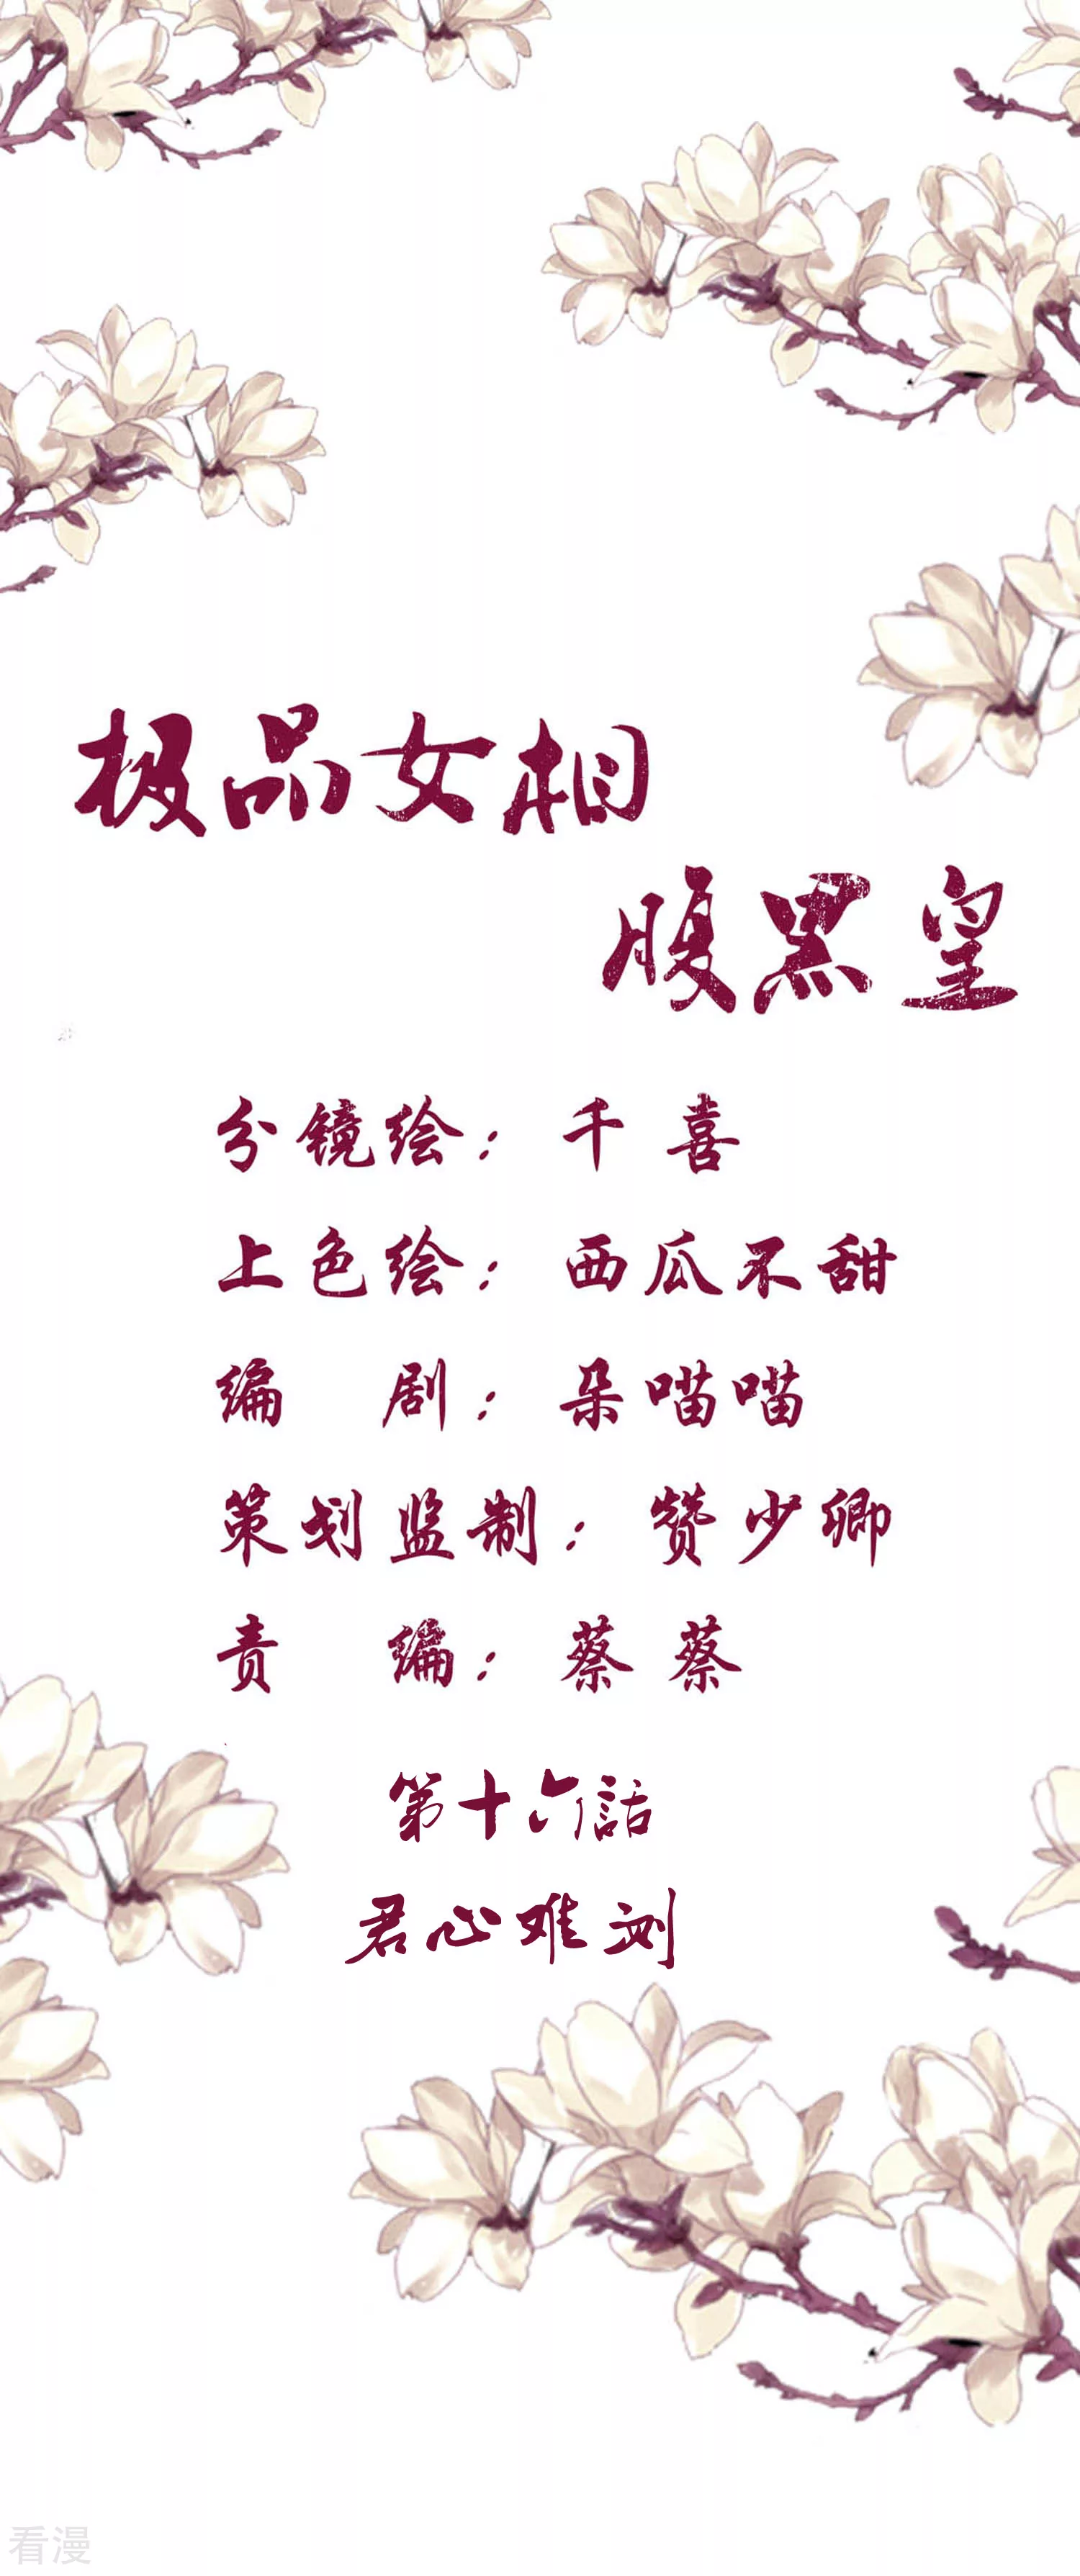 极品女相
腹黑皇
分镜绘：千喜
上色绘：西瓜不甜
编 剧：朵喵喵
策划监制：赞少卿
责 编：蔡蔡
第十六話
君心难测
看漫